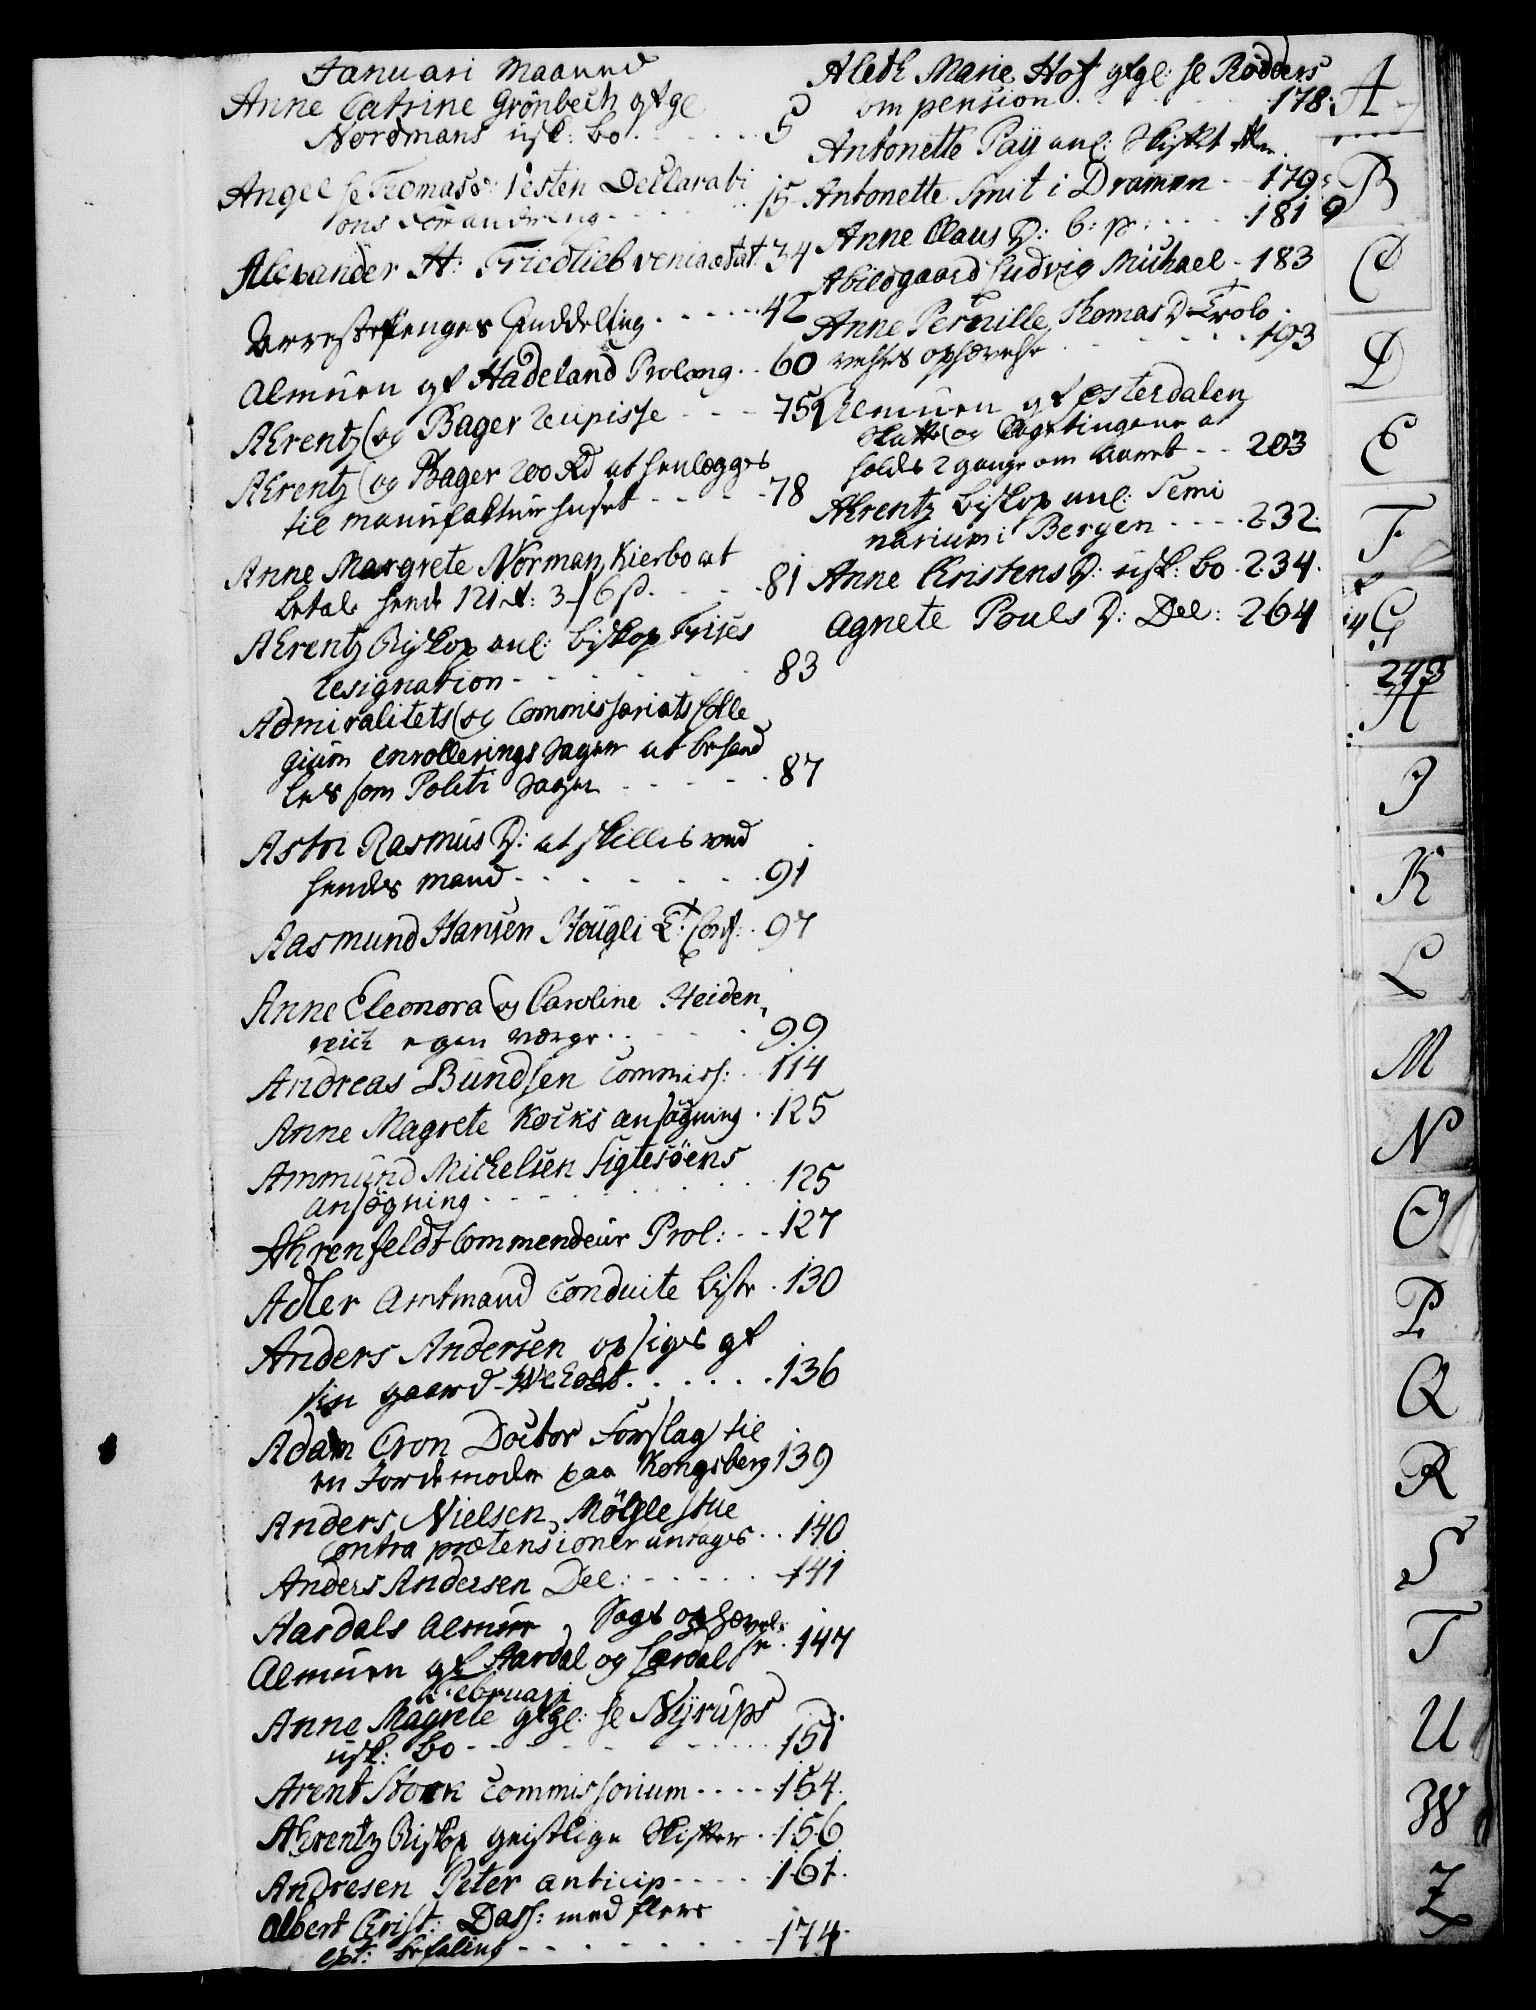 Januari Maaned
Anne Catrine Grönbech gfgl
Nordmans usk: bo . . . . . 5
Angel sl Tomas Vesten Declarati
ons Forandring . . . . . 15
Alexander H: Friedlieb veniaetat: 34
Arrestefanges huddeling . . . . . 42
Almuen gf Hadeland Prolong . . 60
Ahrentz og Bager Reupisse - - - 75
Ahrentz og Bager 200 Rd at henlægges
til manufactur huset - - - - 78
Anne Margrete Norman Kierbo at
betale hende 121 rd: 3 - 6 s. - - - 81
Ahrentz Biskop anl: biskop Frises
Resignation - - - - - - 83
Admiralitets og Commissariats Colle
gium enrollerings sager at behand
les som Politi sager - - - - - 87
Astri Rasmus D: at skilles ved
hendes mand - - - - - - 91
Aasmund Hansen Hougli Et: Conf: . 97
Anne Eleonora og Caroline Heiden
reich egen værge . . - - - 99
Andreas Bundsen Commiss: . . 114
Anne Magrete Kocks ansögning . 125
Ammund Michelsen Sigtesöens
ansögning - - - - - - 125
Ahrenfeldt Commendeur Prol: - - 127
Adler Amtmand Conduite Liste . 130
Anders Andersen opsiges gf
sin gaard . . . . . . 136
Adam Cron Doctor Forslag til
en Jordemoder paa Kongsberg 139
Anders Nielsen Mölglestue
Contra prætensioner antages . . 140
Anders Andersen Del: - - - - - 141
Aardals Almue, Sags ophævel-
Almuen gf Aardal og Lærdal se . 147
Februari
Anne Magrete gfgl: sl Nyrups
usk: bo - - - - - - - 151
Arent Stock Commissorium - - - - 154
Ahrentz Biskop geistlige Skifter . 156
Andresen Peter anticip - - - - - 161
Albert Christ: Dass: med flere
ext: befaling - - - - - - 174
Aleth Marie Hof gfgl: sl Rödders
om pension . . . . . . 178
Antonette Pay anl: Skiftet
Antonette Smit i Drammen - - 179
Anne Claus D: b: p: . . . 181
Abildgaard Ludvig Michael - 183
Anne Pernille Thomas D: Trolo
velses ophævelse - - - - - 193
Almuen gf Østerdalen
Skatte og Sagetingene at
holde 2 gange om aaret - - 203
Ahrentz biskop anl: Semi
narium i Bergen - - - - 232
Anne Kristens D: usk: bo . 234
Agnete Pouls D: Del: 264
A
B
9
C
D
E
F
G
14
243
H
I
K
L
M
N
O
P
Q
R
S
T
U
W
Z